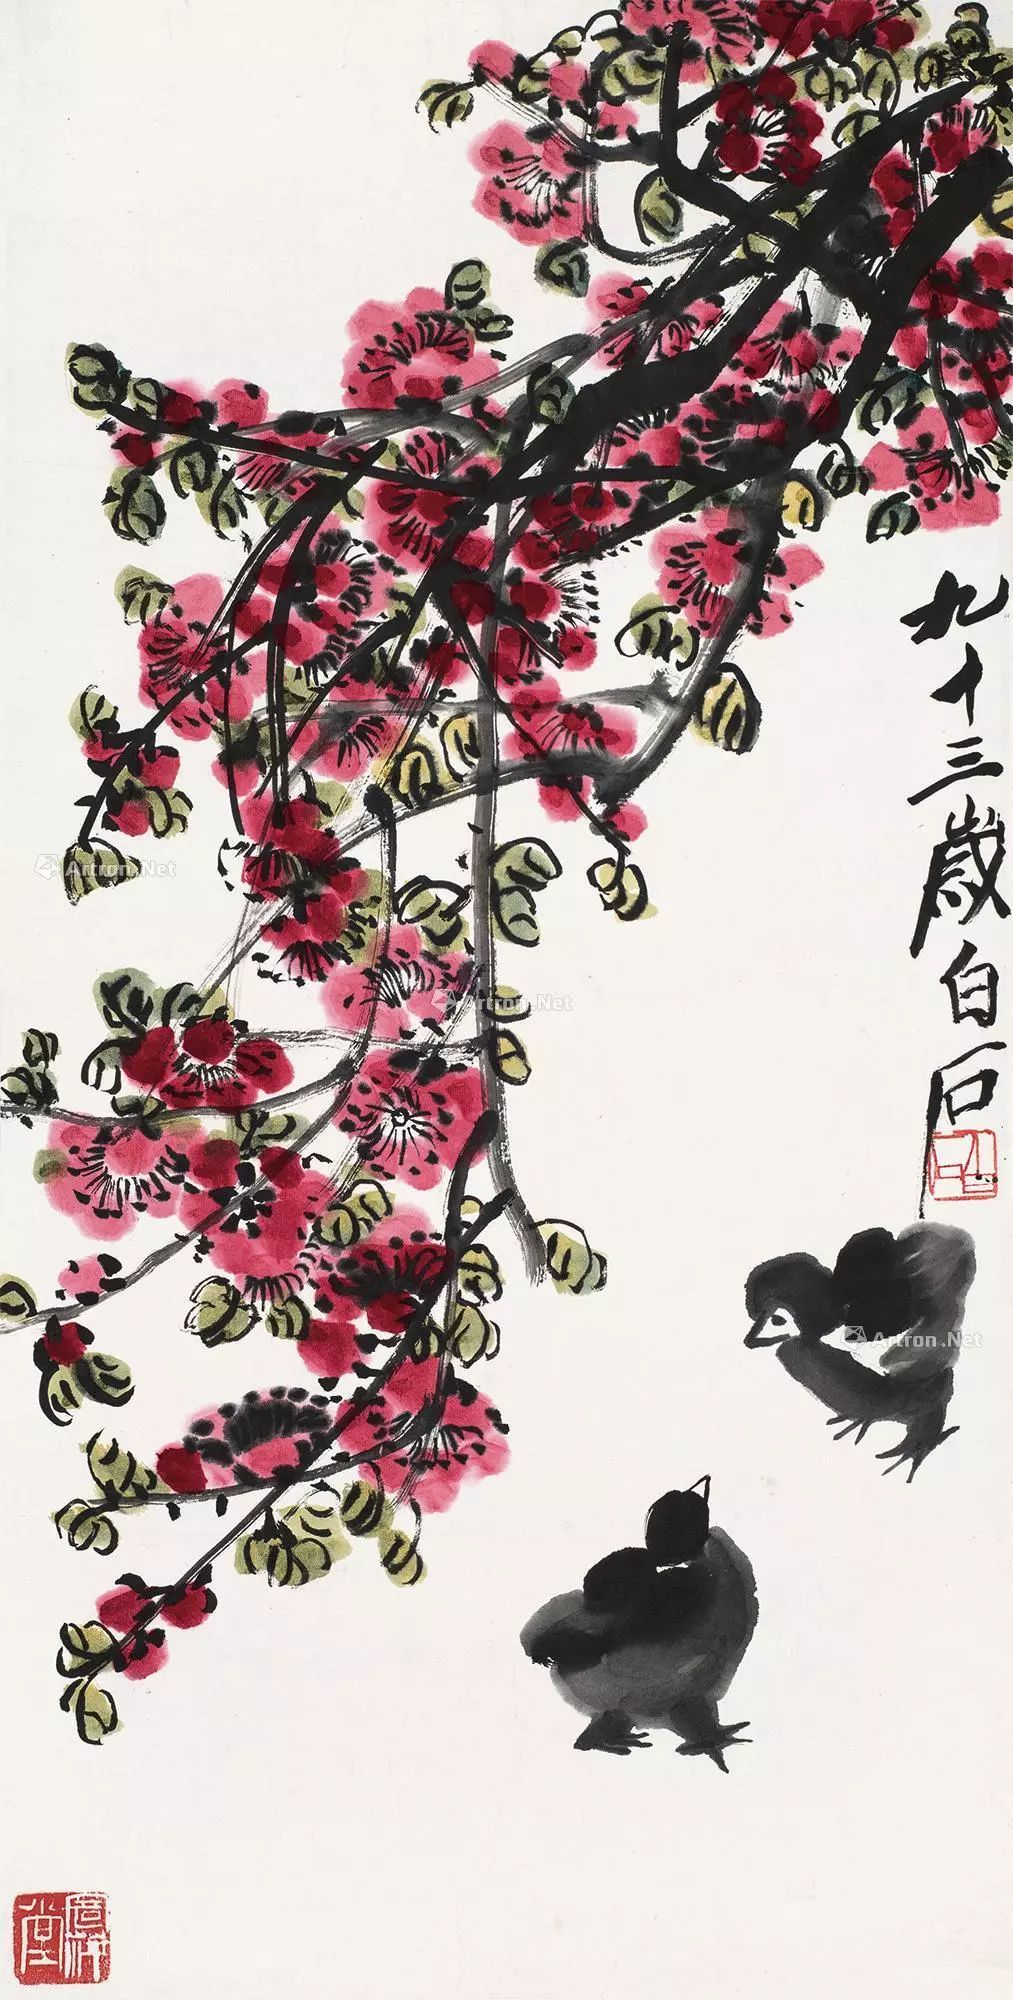 九十三歲白石
Artron.Net
Artron.Net
Artron.Net